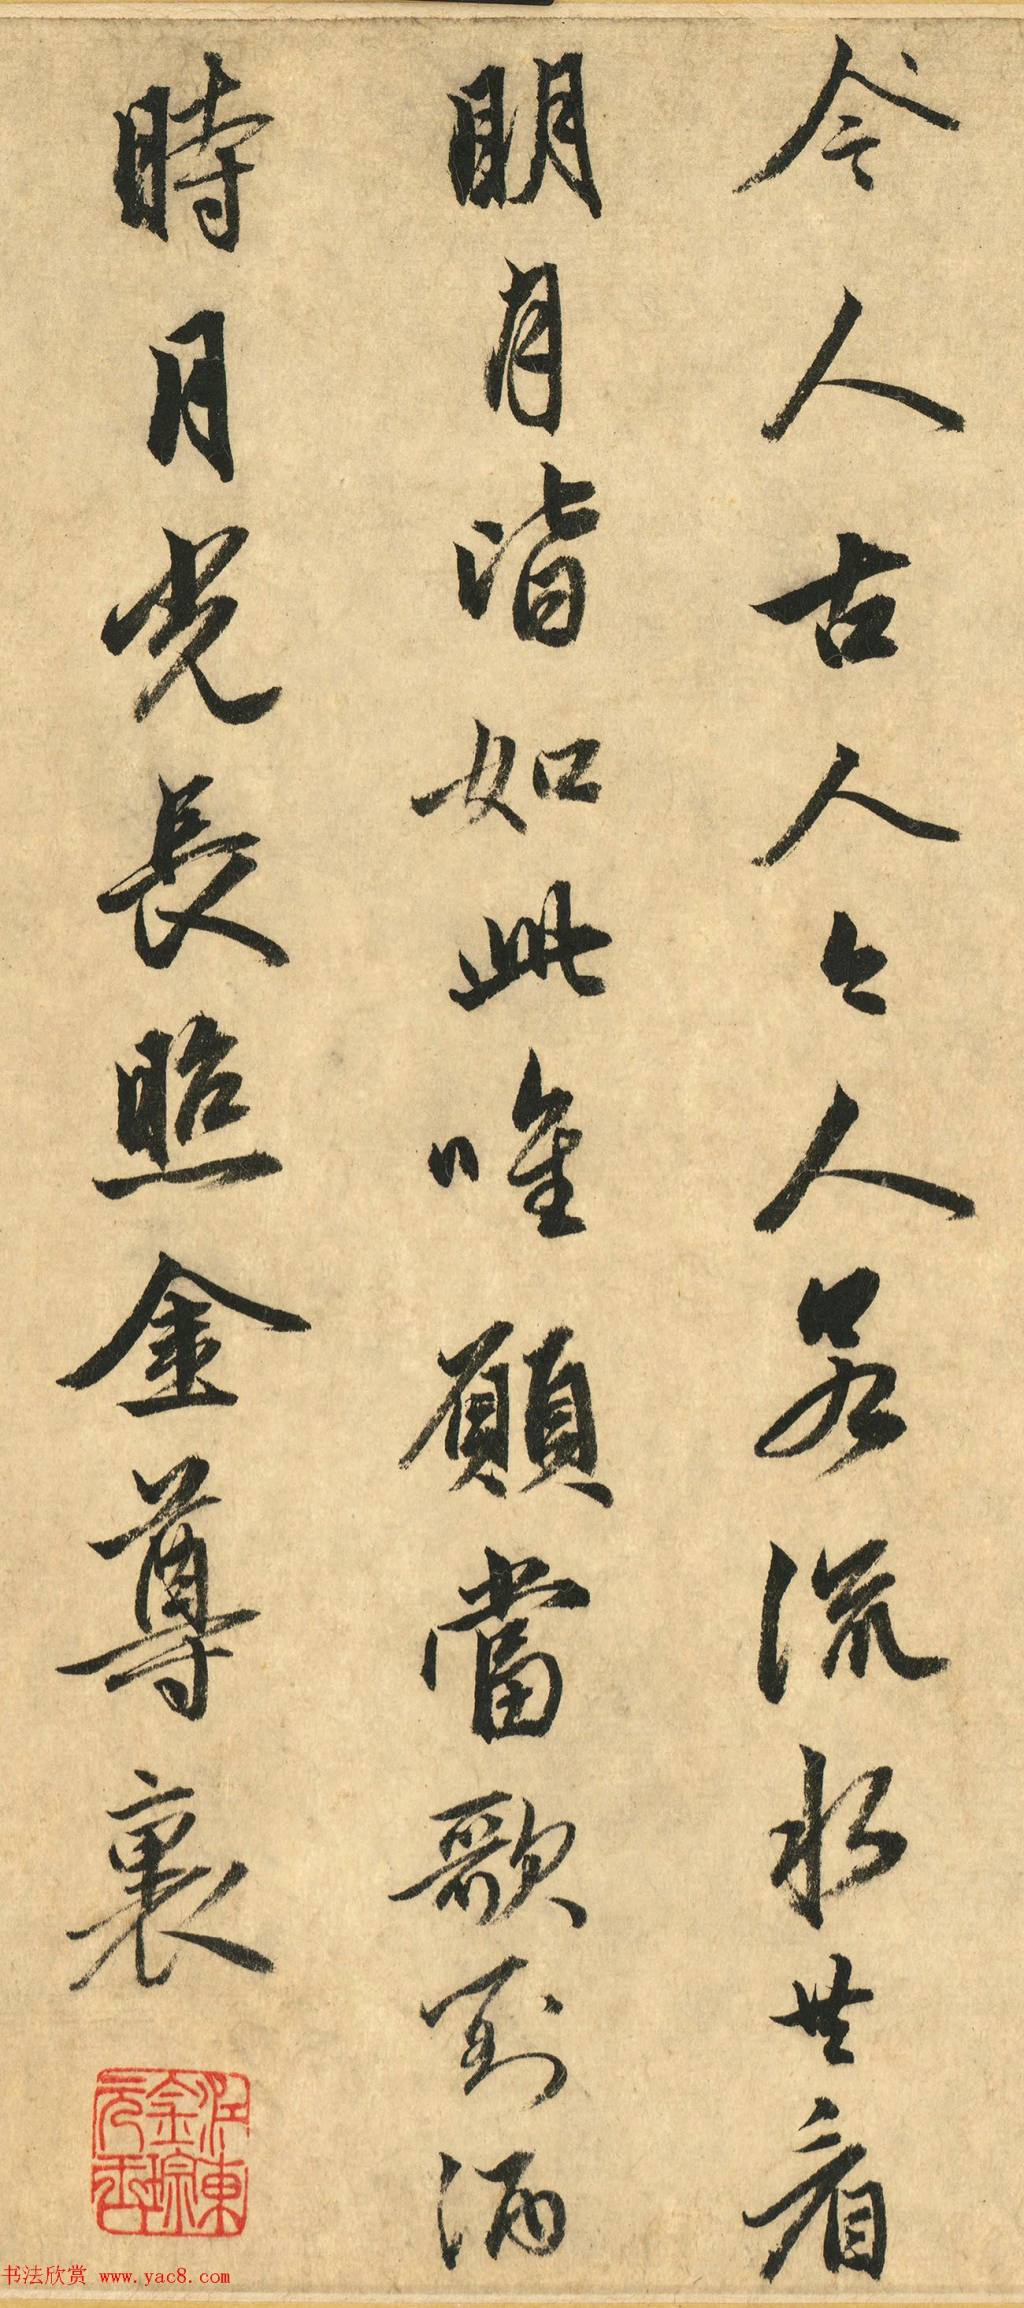 今人古人今人若流水共看
明月皆如此唯願當歌對酒
時月光長照金尊裏
书法欣赏 www.yac8.com